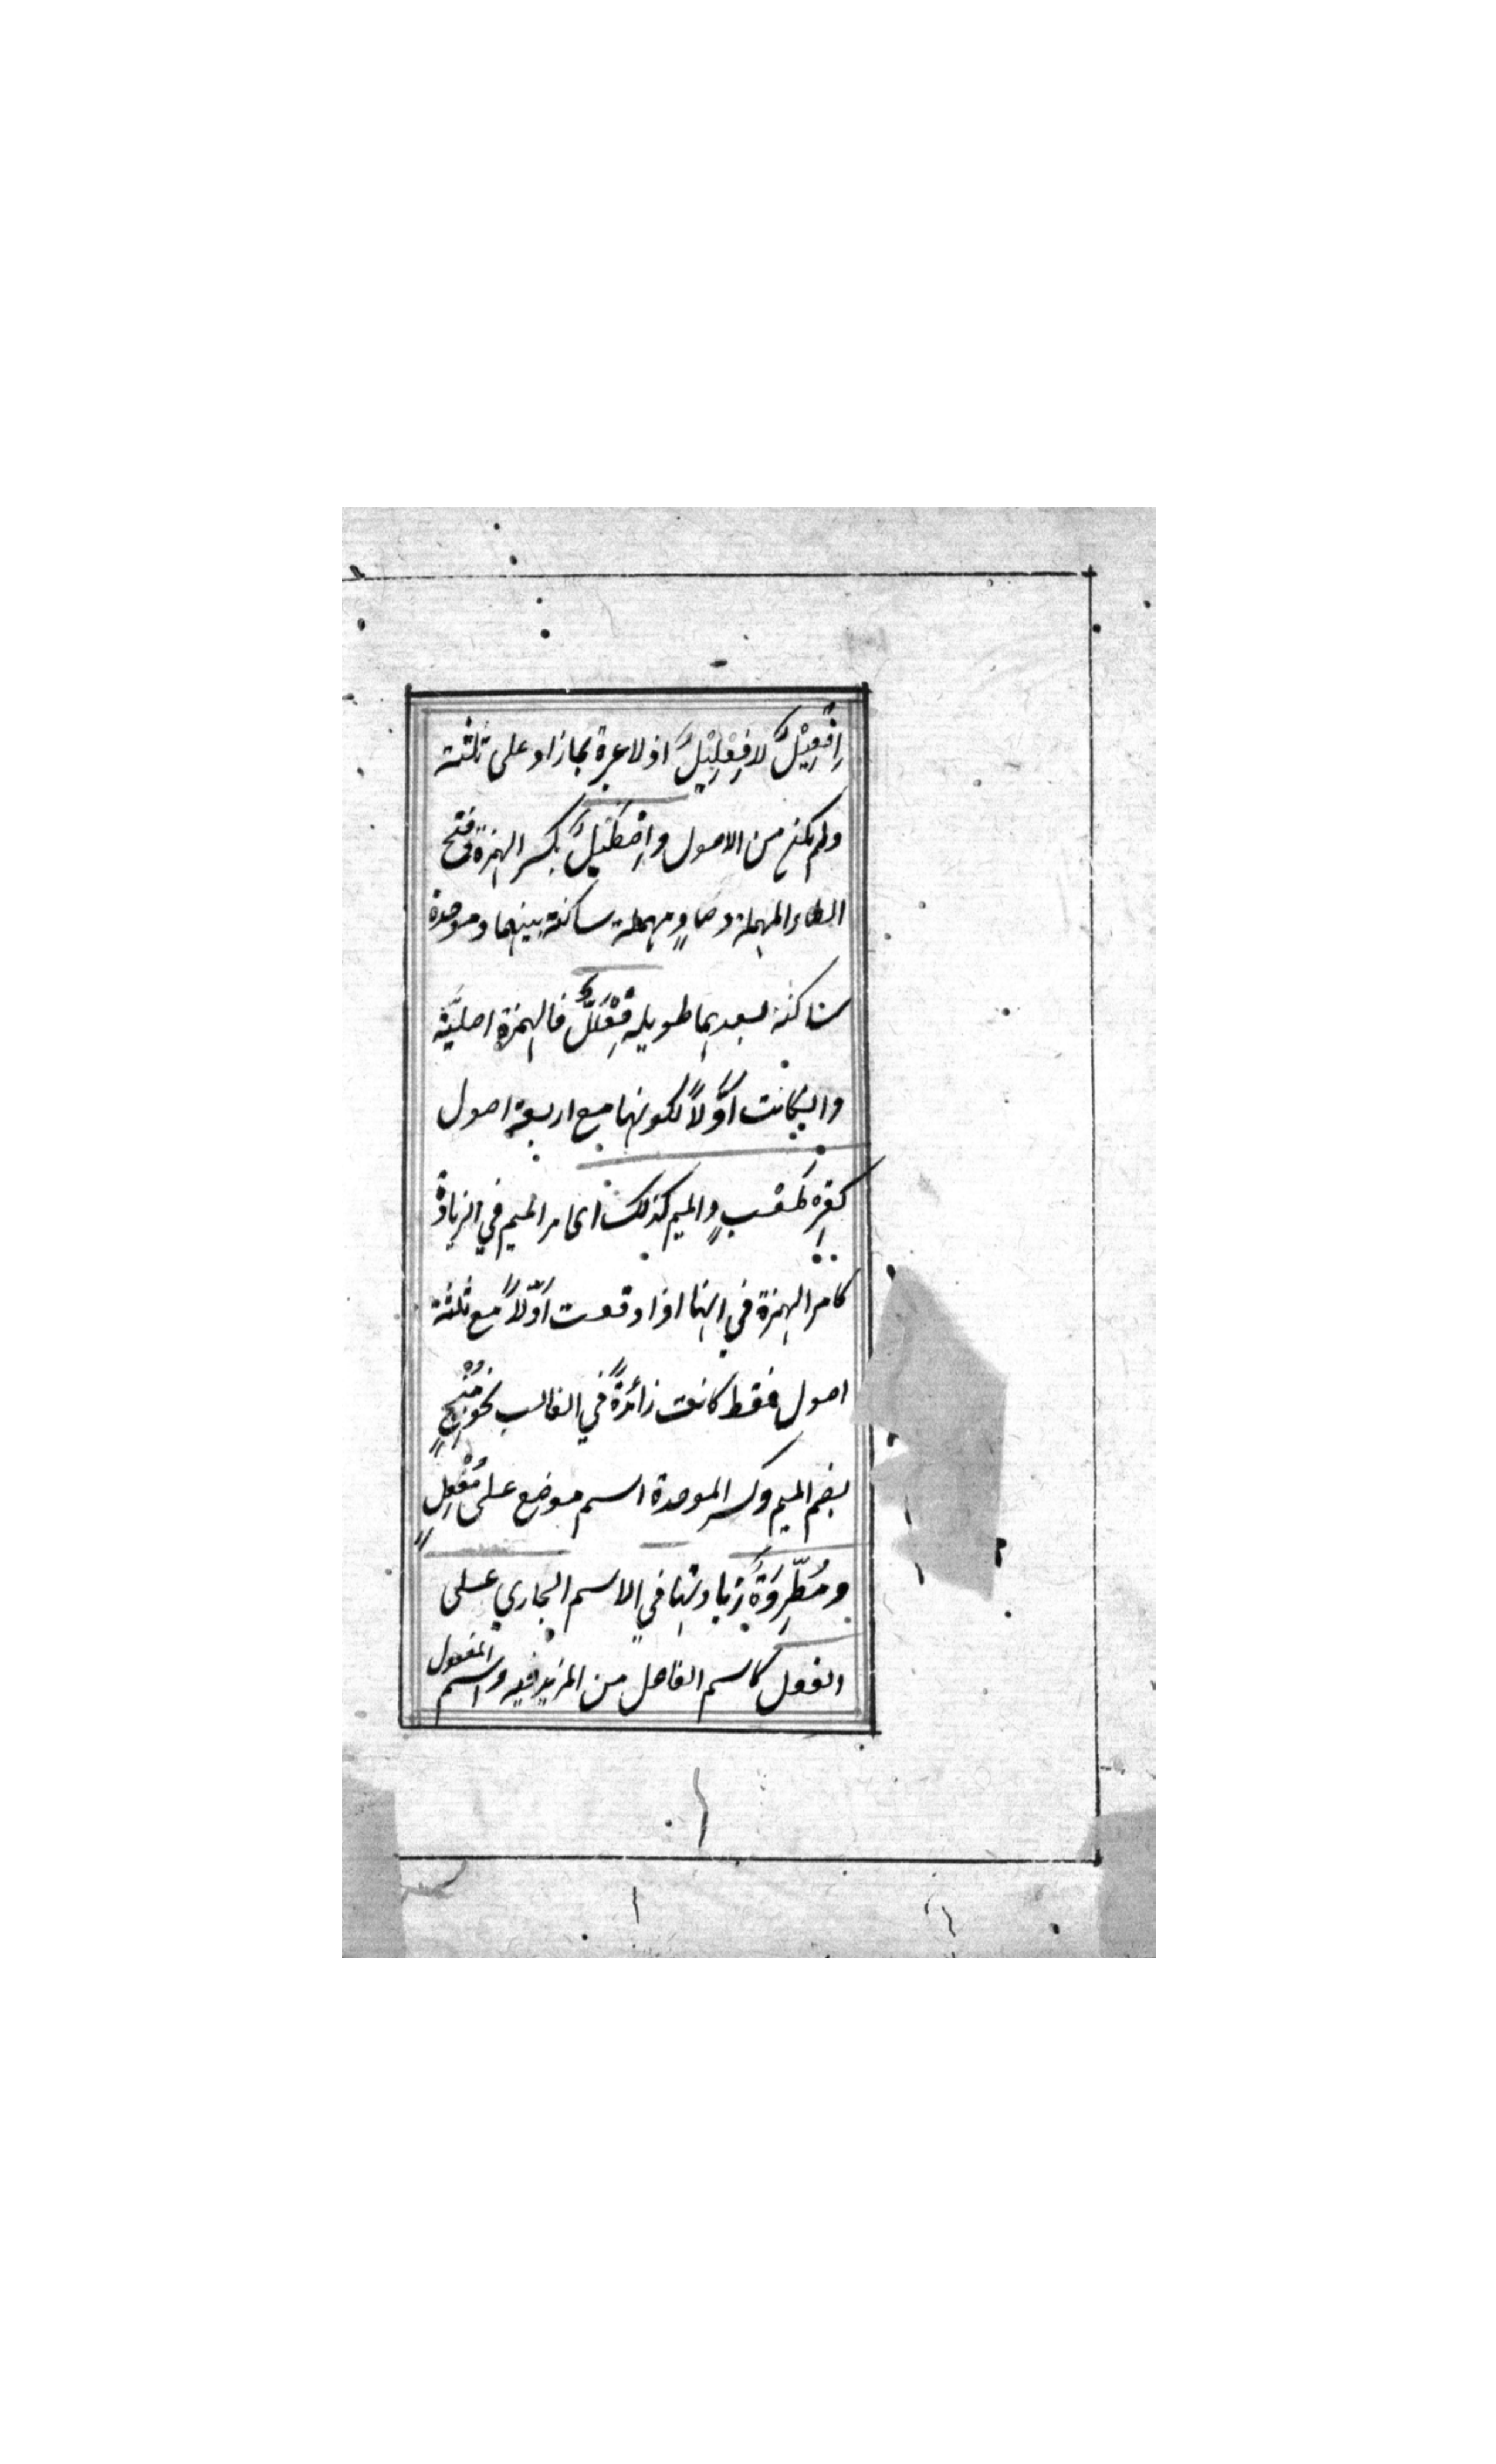 اِفْعِيْلٌ لا فِعْلِيْلٌ اذ لا عبرة بما زاد على ثلثة
ولم يكن من الاصول واِصْطَبْلٌ بكسر الهمزة فتح
الطاء المهملة وصاد مهملة ساكنة بينهما وموحدة
ساكنة بعدها طويله فِعْلَلٌّ فالهمزة اصليّة
وان كانت اوّلاً لكونها مع اربعة اصول
كقِرْطَعْبٍ والميم كذلك اى امر الميم في الزيادة
كامر الهمزة في انها اذا وقعت اوّلاً مع ثلثة
اصول فقط كانت زائدةً في الغالب نحو مَنْبِجٍ
بضم الميم وكسر الموحدة اسم موضع على مُفْعِلٍ
ومُطَّرِدَةٌ زيادتها في الاسم الجاري على
الفعل كاسم الفاعل من المزيد فيه واسم المفعول